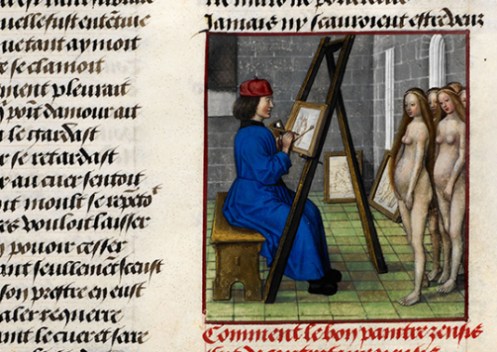 uelle fust entētiue
ue tant ay mort
r se clamoit
ment pleurait
poīt damour ait
le regardast
r se retardast
r au cuer sentoit
nt moult se repēto
es vouloit laisser
pouoir cesser
ant seullement
son prestre en eust
aler requerre
nt le cuer et serre
Jamais ny scauroient estre veuz
Comment le bon paintre zensis